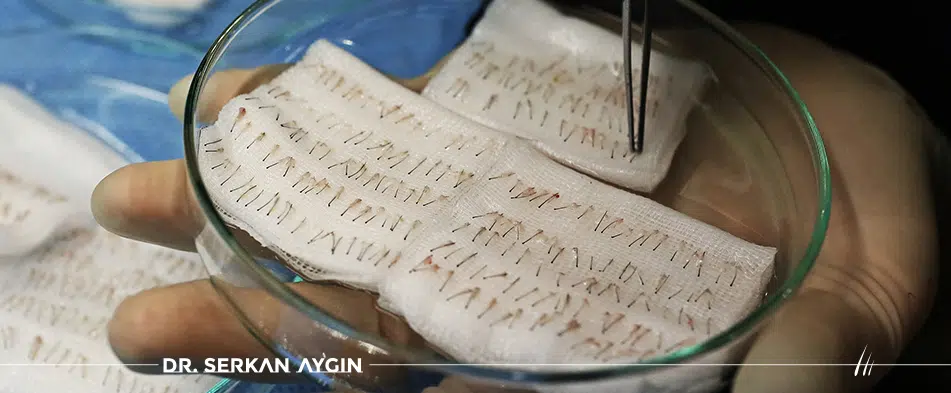 DR. SERKAN AYGIN